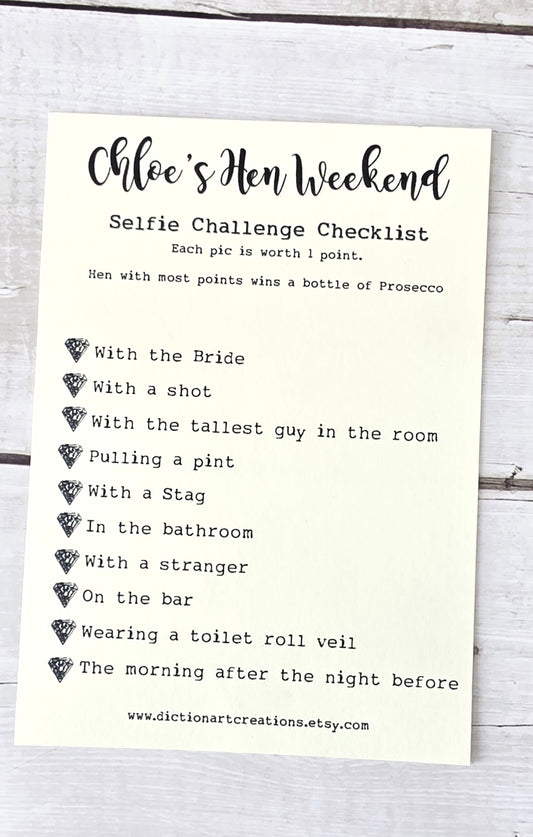 Chloe's Hen Weekend
Selfie Challenge Checklist
Each pic is worth 1 point.
Hen with most points wins a bottle of Prosecco
With the Bride
With a shot
With the tallest guy in the room
Pulling a pint
With a Stag
In the bathroom
With a stranger
On the bar
Wearing a toilet roll veil
The morning after the night before
www.dictionartcreations.etsy.com